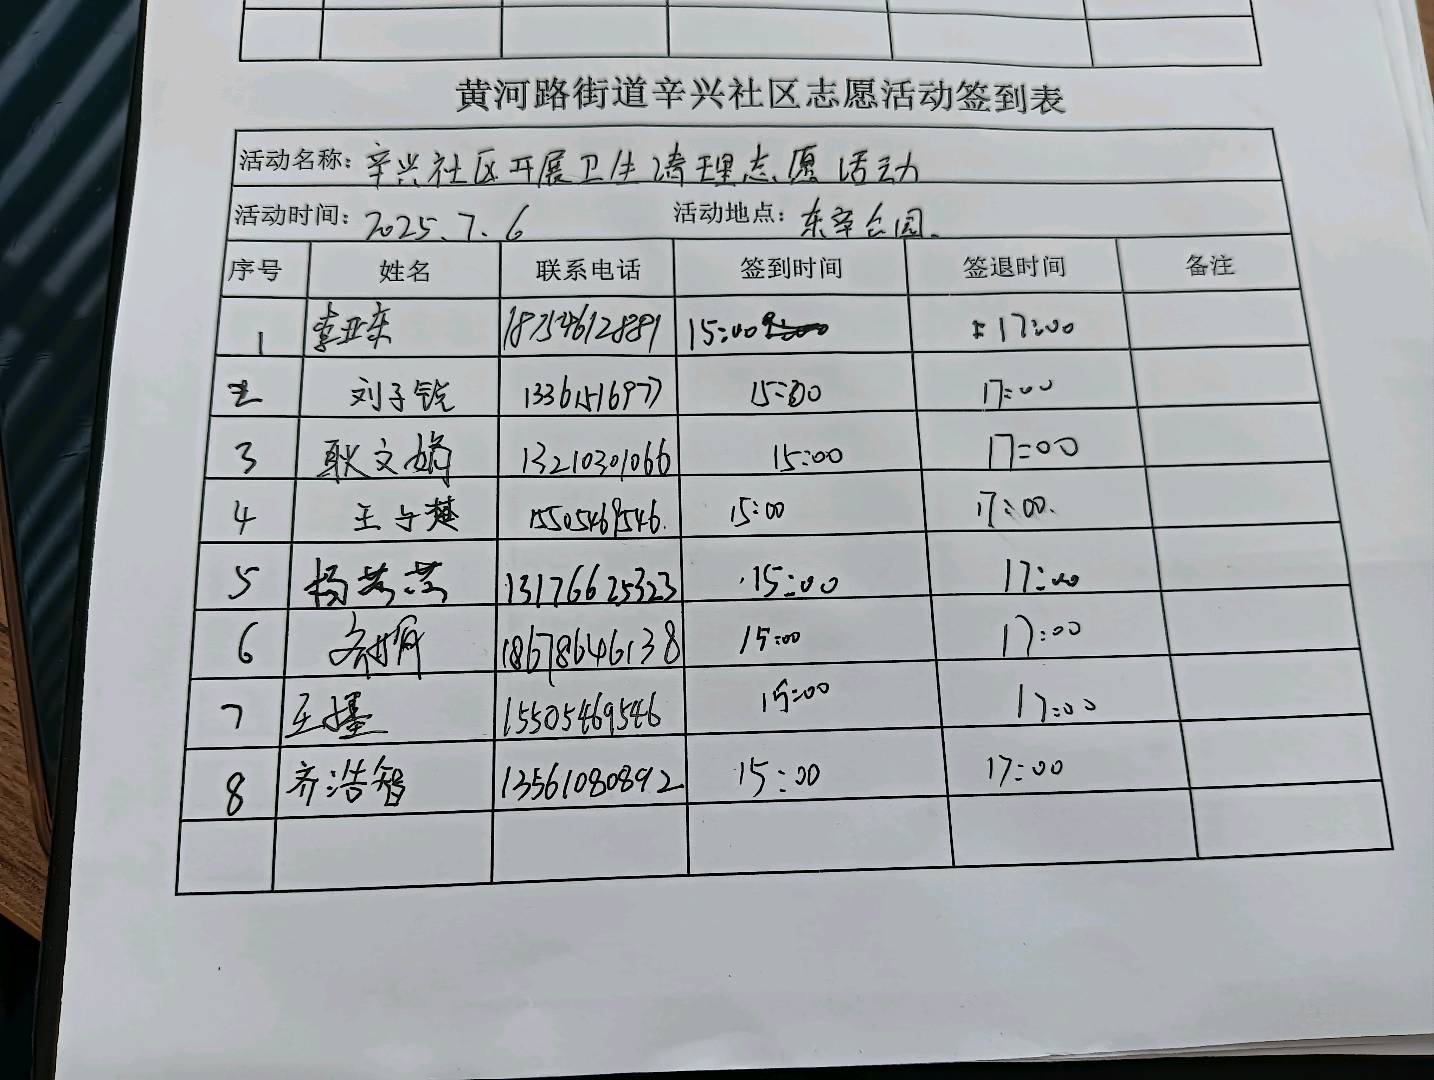 黄河路街道辛兴社区志愿活动签到表
活动名称：辛兴社区开展卫生清理志愿活动
活动时间：2025.7.6 活动地点：东辛公园.
序号 姓名 联系电话 签到时间 签退时间 备注
1 李亚东 18754612889 15:00 17:00
2 刘子锐 13361516977 15:00 17:00
3 耿文娟 13210301066 15:00 17:00
4 王 15505469546. 15:00 17:00.
5 杨 13176625323 15:00 17:00
6 18678646138 15:00 17:00
7 王 15505469546 15:00 17:00
8 齐浩智 13561080892 15:00 17:00